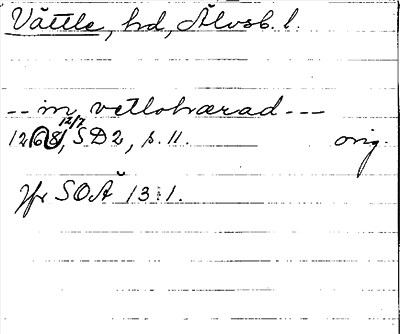 Vättle, hd, Älvsb. l.
-- in vetlohærad ---
12/7
1268, SD 2, s. 11. orig.
Jfr SOÄ 13:1.